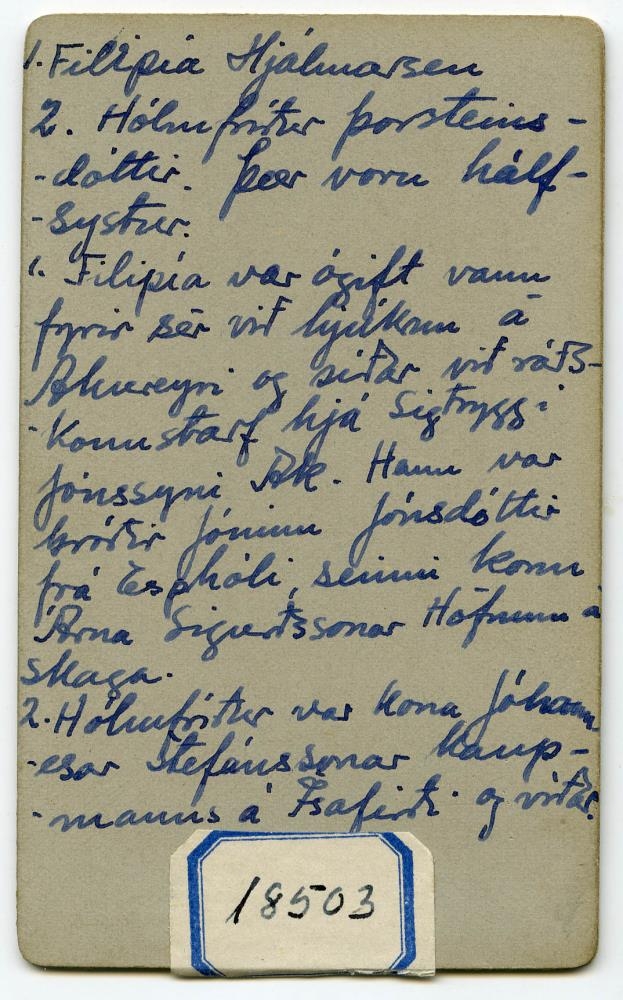 1. Filipía Hjálmarsen
2. Hólmfríður Þorsteins-
-dóttir. Þær voru hálf-
-systur.
1. Filipía var ógift vann
fyrir sér við hjúkrun á
Akureyri og síðar við ráðs-
-konustarf hjá Sigtryggi
Jónssyni Ak. Hann var
bróðir Jónínu Jónsdóttir
frá Esphóli, seinni konu
Árna Sigurðssonar Höfnum á
Skaga.
2. Hólmfríður var kona Jóhann
-esar Stefánssonar kaup-
-manns á Ísafirði og víðar.
18503